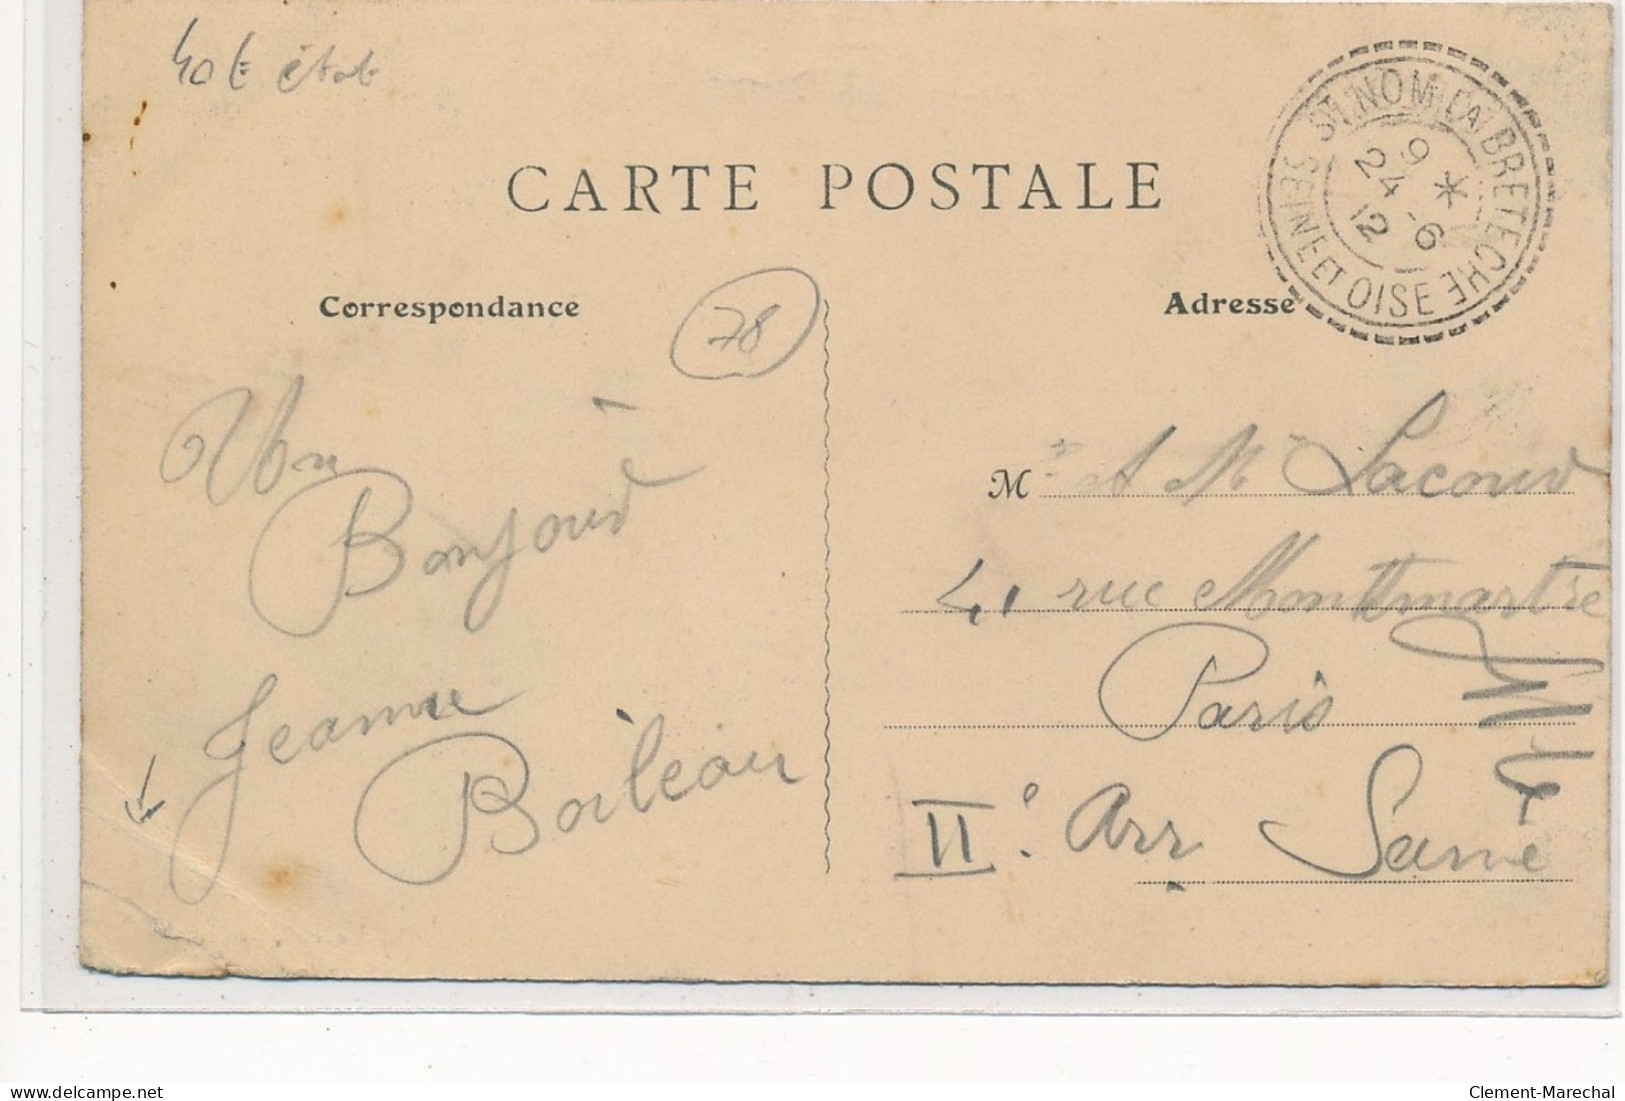 état
CARTE POSTALE
ST NOM LA BRETECHE
SEINE ET OISE
9 *
24 - 6
12
Correspondance
78
Adresse
Un
Bonjour
Jeanne
Boileau
M r & M Lacour
41 rue Montmartre
Paris
II e Arr Seine
delcampe.net
Clement-Marechal